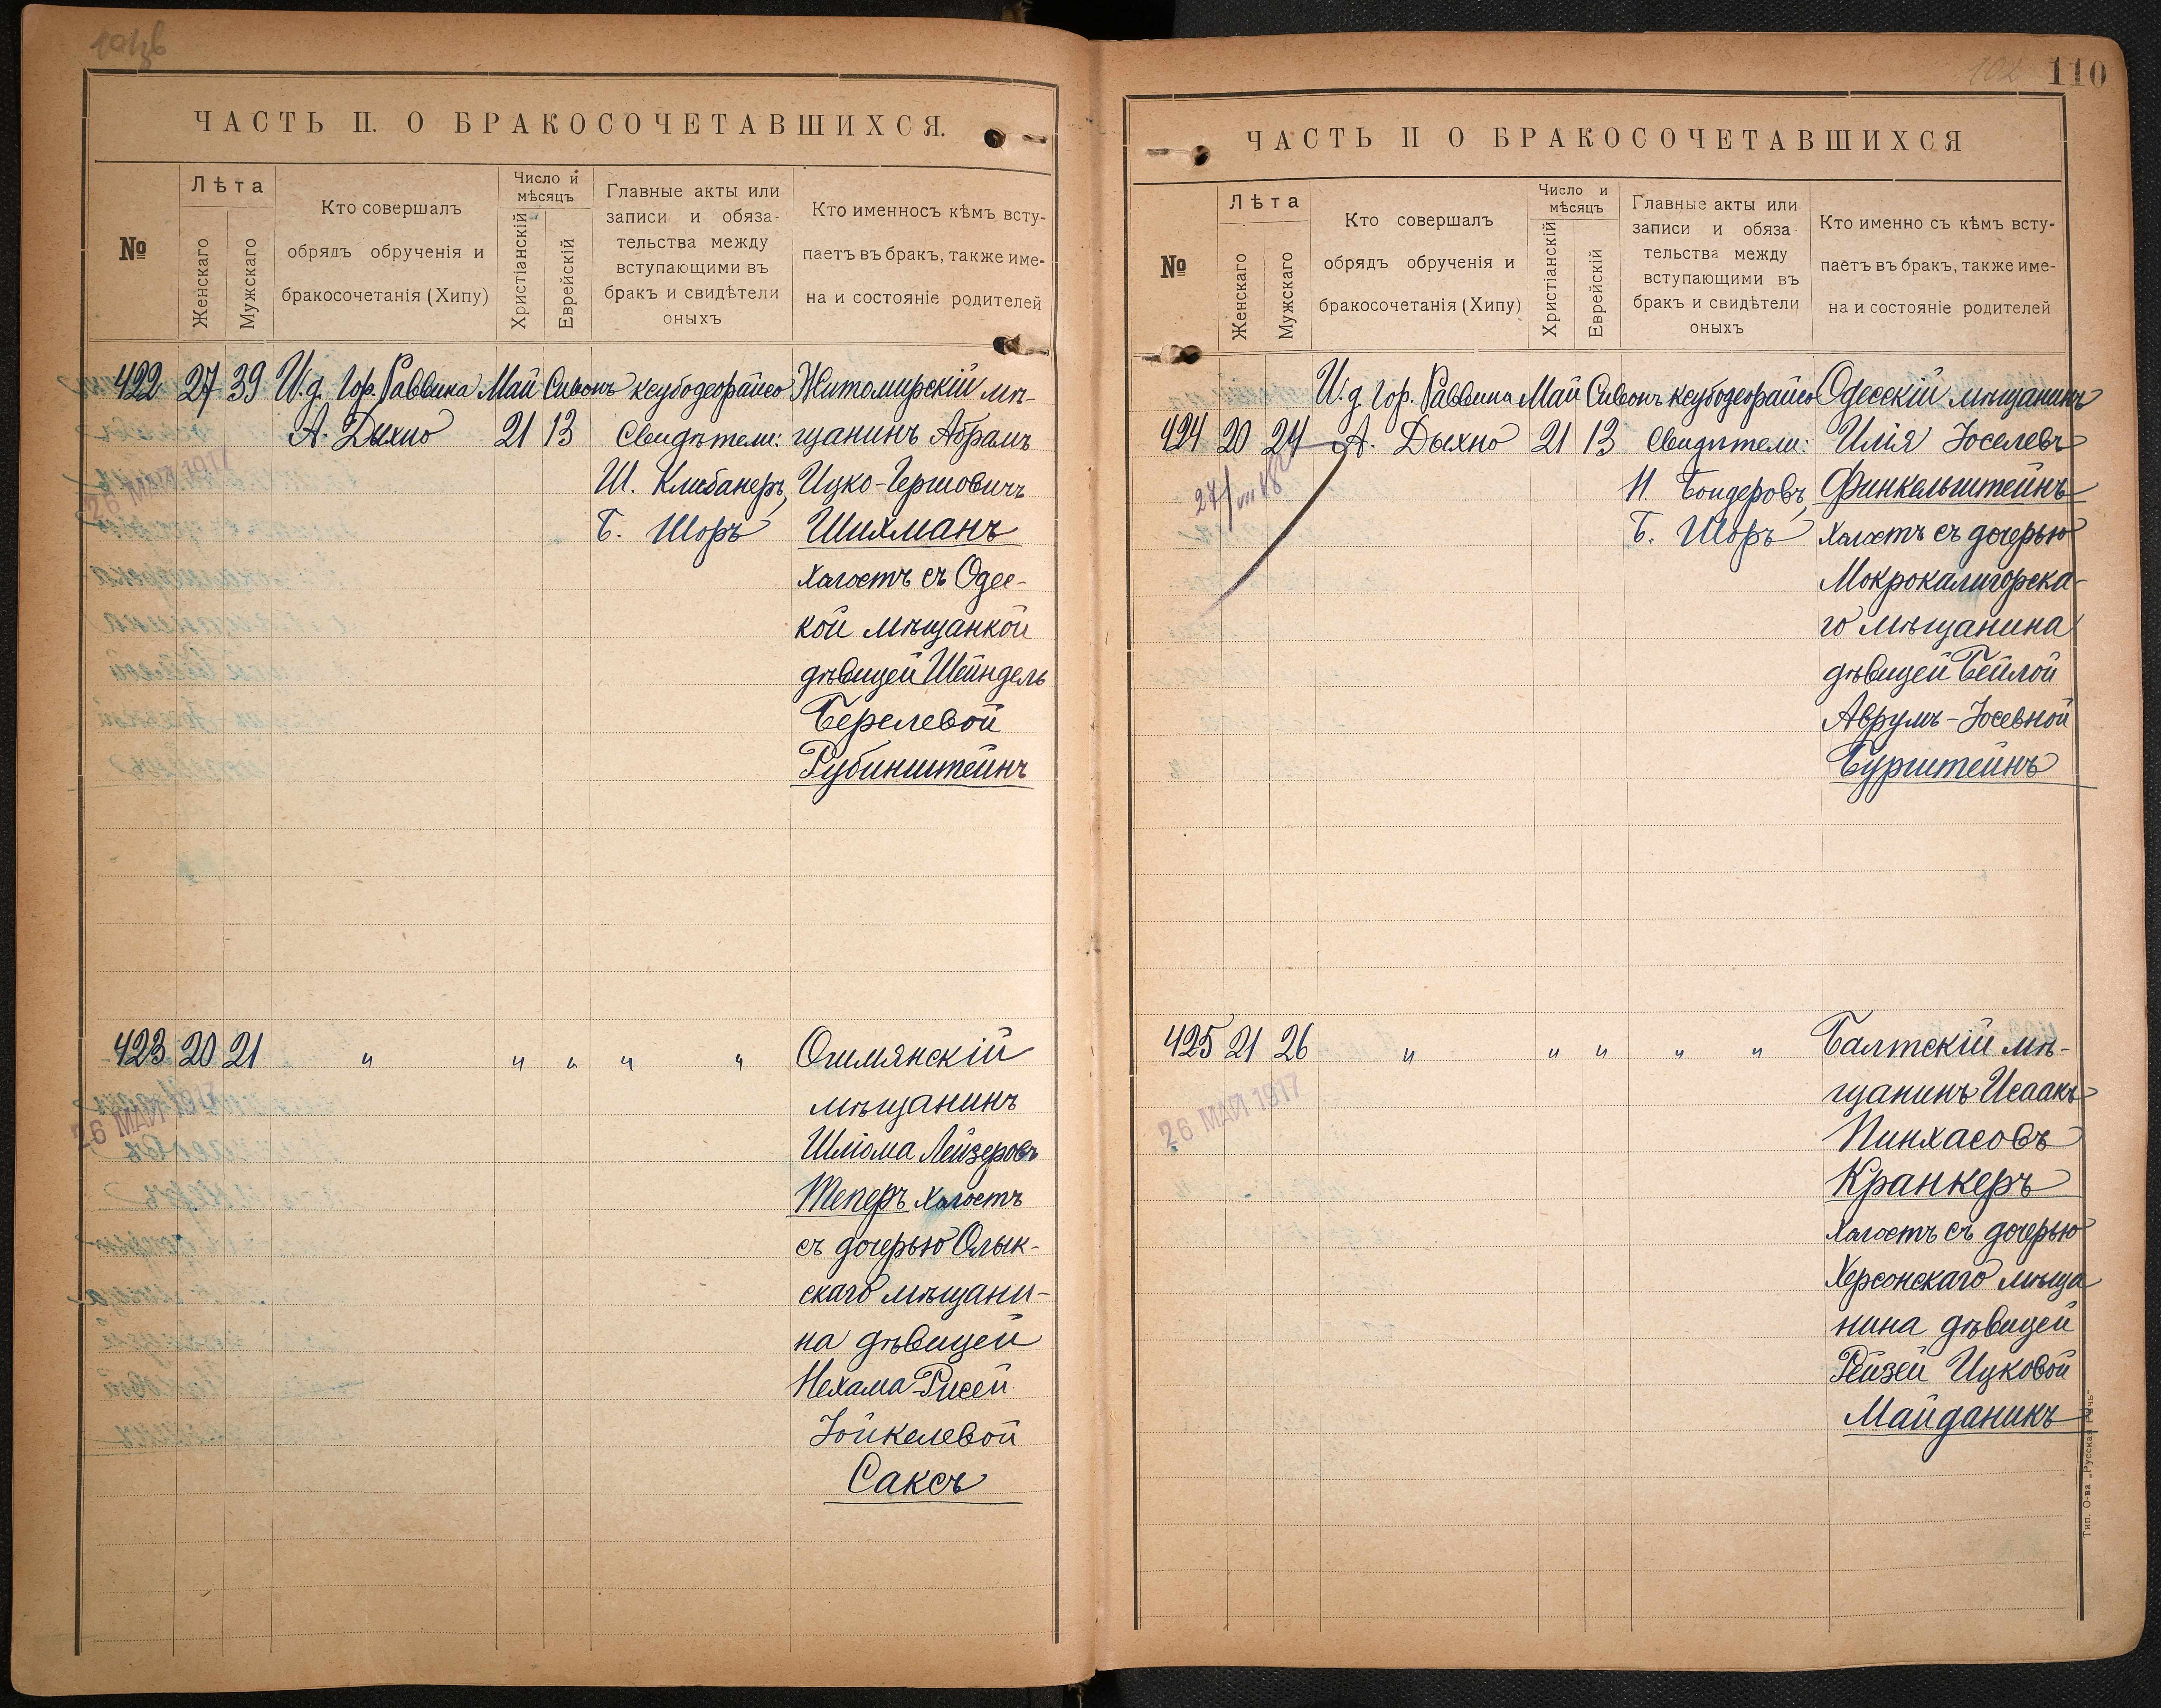 ЧАСТЬ II. О БРАКОСОЧЕТАВШИХСЯ.
№
Лѣта
Женскаго
Мужскаго
Кто совершалъ
обрядъ обрученія и
бракосочетанія (Хипу)
Число и
мѣсяцъ
Христіанскій
Еврейскій
Главные акты или
записи и обяза-
тельства между
вступающими въ
бракъ и свидѣтели
оныхъ
Кто именносъ кѣмъ всту-
паетъ въ бракъ, также име-
на и состояніе родителей
422 27 39 И.д. Гор. Раввина Май Сивонъ ксубодеорайсо Житомирскій мѣ-
А. Дыхно 21 13 Свидѣтели: щанинъ Абрамъ
Ш. Клибанеръ, Ицко-Гершовичъ
Б. Шоръ Шихманъ
холостъ съ Одес-
кой мѣщанкой
дѣвицей Шейндель
Берелевой
Рубинштейнъ
26 МАЯ 1917
423 20 21 " " " " " Ошмянскій
мѣщанинъ
Шлiома Лейзеровъ
Теперъ холостъ
съ дочерью Олык-
скаго мѣщани-
на дѣвицей
Нехама-Рисей
Іойкелевой
Саксъ
26 МАЯ 1917
110
ЧАСТЬ II О БРАКОСОЧЕТАВШИХСЯ
№
Лѣта
Женскаго
Мужскаго
Кто совершалъ
обрядъ обрученія и
бракосочетанія (Хипу)
Число и
мѣсяцъ
Христіанскій
Еврейскій
Главные акты или
записи и обяза
тельства между
вступающими въ
бракъ и свидѣтели
оныхъ
Кто именно съ кѣмъ всту-
паетъ въ бракъ, также име-
на и состояніе родителей
И.д. Гор. Раввина Май Сивонъ ксубодеорайсо Одесскій мѣщанинъ
424 20 24 А. Дыхно 21 13 Свидѣтели: Илія Іоселевъ
Н. Бондеровъ, Финкельштейнъ
Б. Шоръ холостъ съ дочерью
Мокрокалигорска-
го мѣщанина
дѣвицей Бейлой
Аврумъ-Іосевной
Бурштейнъ
425 21 26 " " " " " Балтскій мѣ-
щанинъ Исаакъ
Пинхасовъ
Кранкеръ
холостъ съ дочерью
Херсонскаго мѣща
нина дѣвицей
Рейзей Ицковой
Майданикъ
26 МАЯ 1917
Тип. О-ва „Русская Рѣчь"